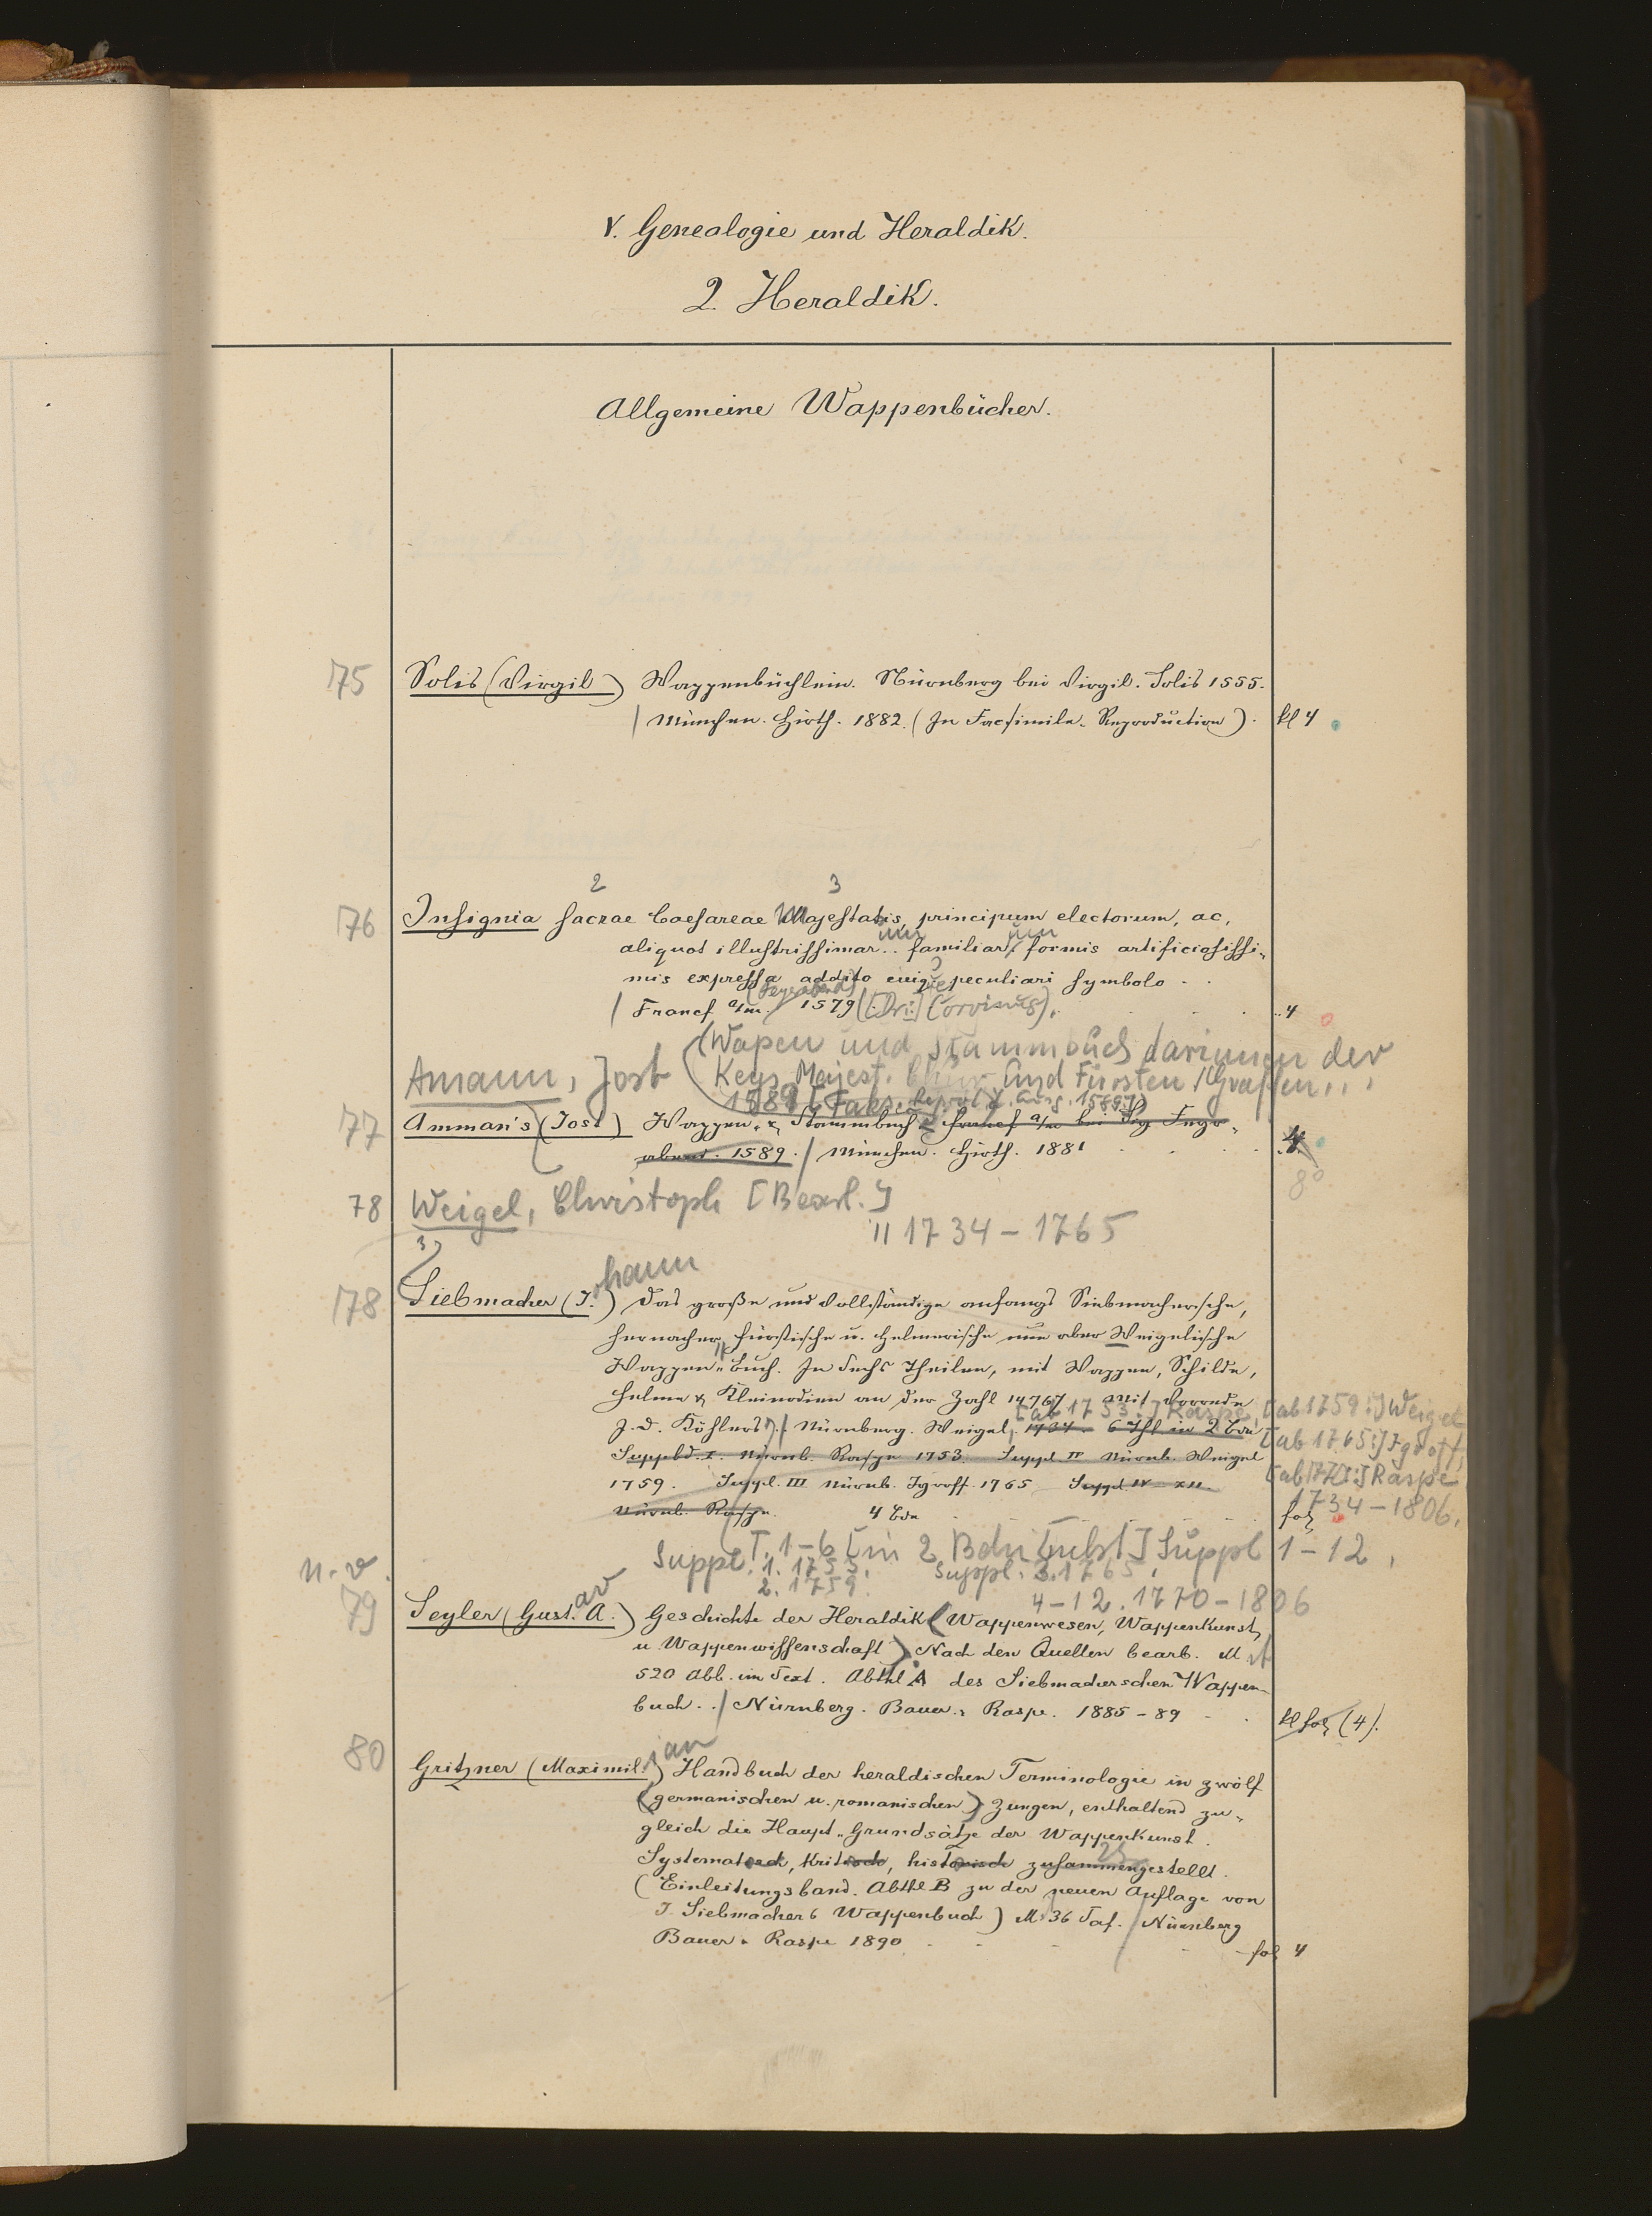 V. Genealogie und Heraldik.
2. Heraldik.
Allgemeine Wappenbücher.
75 Solis (Virgil) Wappenbüchlein. Nürnberg bei Virgil. Solis 1555.
/ München. Hirth. 1882. (In Facsimile-Reproduction). kl 4
2 3
76 Insignia sacrae Caesareae Majestatis, principum electorum, ac,
aliquot illustrissimar.. familiar. formis artificiosissi-
mis expressa addito cuiq peculiari symbolo
(Feyrabend)
/ Francf a/m. 1579 Corvinus). 4
(Wapen und Stammbuch darinnen der
Amann, Jost Keys. Majest. Chur und Fürsten, Graffen...
1589
77 Amman's (Jost) Wappen & Stammbuch Francf a/m bei Sig Feyr-
abend. 1589. / München. Hirth. 1881 4
8°
78 Weigel, Christoph [Bearb.]
11 1734-1765
hann
78 Siebmacher (J.) Das große und vollständige anfangs Siebmachersche,
hernacher Fürstische u. Helmerische nun aber Weigelische
Wappen-Buch. In sechs Theilen, mit Wappen, Schilde,
Helme & Kleinodien an der Zahl 14767 mit Vorrede
[ab 1753:] Raspe, [ab 1759:] Weigel
J. D. Köhlers / Nürnberg. Weigel, 1734. 6 Thl in 2 Bdn [ab 1765:] Igroff,
Supplbd. I. Nürnb. Raspe 1753. Suppl II Nürnb. Weigel
1759. Suppl. III Nürnb. Igroff. 1765 Suppl IV-XII. [ab 1770:] Raspe
Nürnb. Raspe. 4 Bde fol 1734-1806.
T. 1-6 [in 2 Bdn nebst] Suppl 1-12,
Suppl. 1. 1753. Suppl. 3. 1765,
n. v. 2. 1759. 4-12. 1770-1806
av
79 Seyler (Gust. A.) Geschichte der Heraldik (Wappenwesen, Wappenkunst,
u Wappenwissenschaft) Nach den Quellen bearb. M
520 Abb. im Text. Abthl A des Siebmacherschen Wappen-
buch.. / Nürnberg. Bauer & Raspe. 1885-89 kl fol (4).
ian
80 Gritzner (Maximil.) Handbuch der heraldischen Terminologie in zwölf
(germanischen u. romanischen) Zungen, enthaltend zu-
gleich die Haupt-Grundsätze der Wappenkunst.
Systematisch, kritisch, historisch zusammengestellt.
(Einleitungsband. Abthl B zu der neuen Auflage von
J. Siebmachers Wappenbuch) M. 36 Taf. / Nürnberg
Bauer & Raspe 1890 fol 4